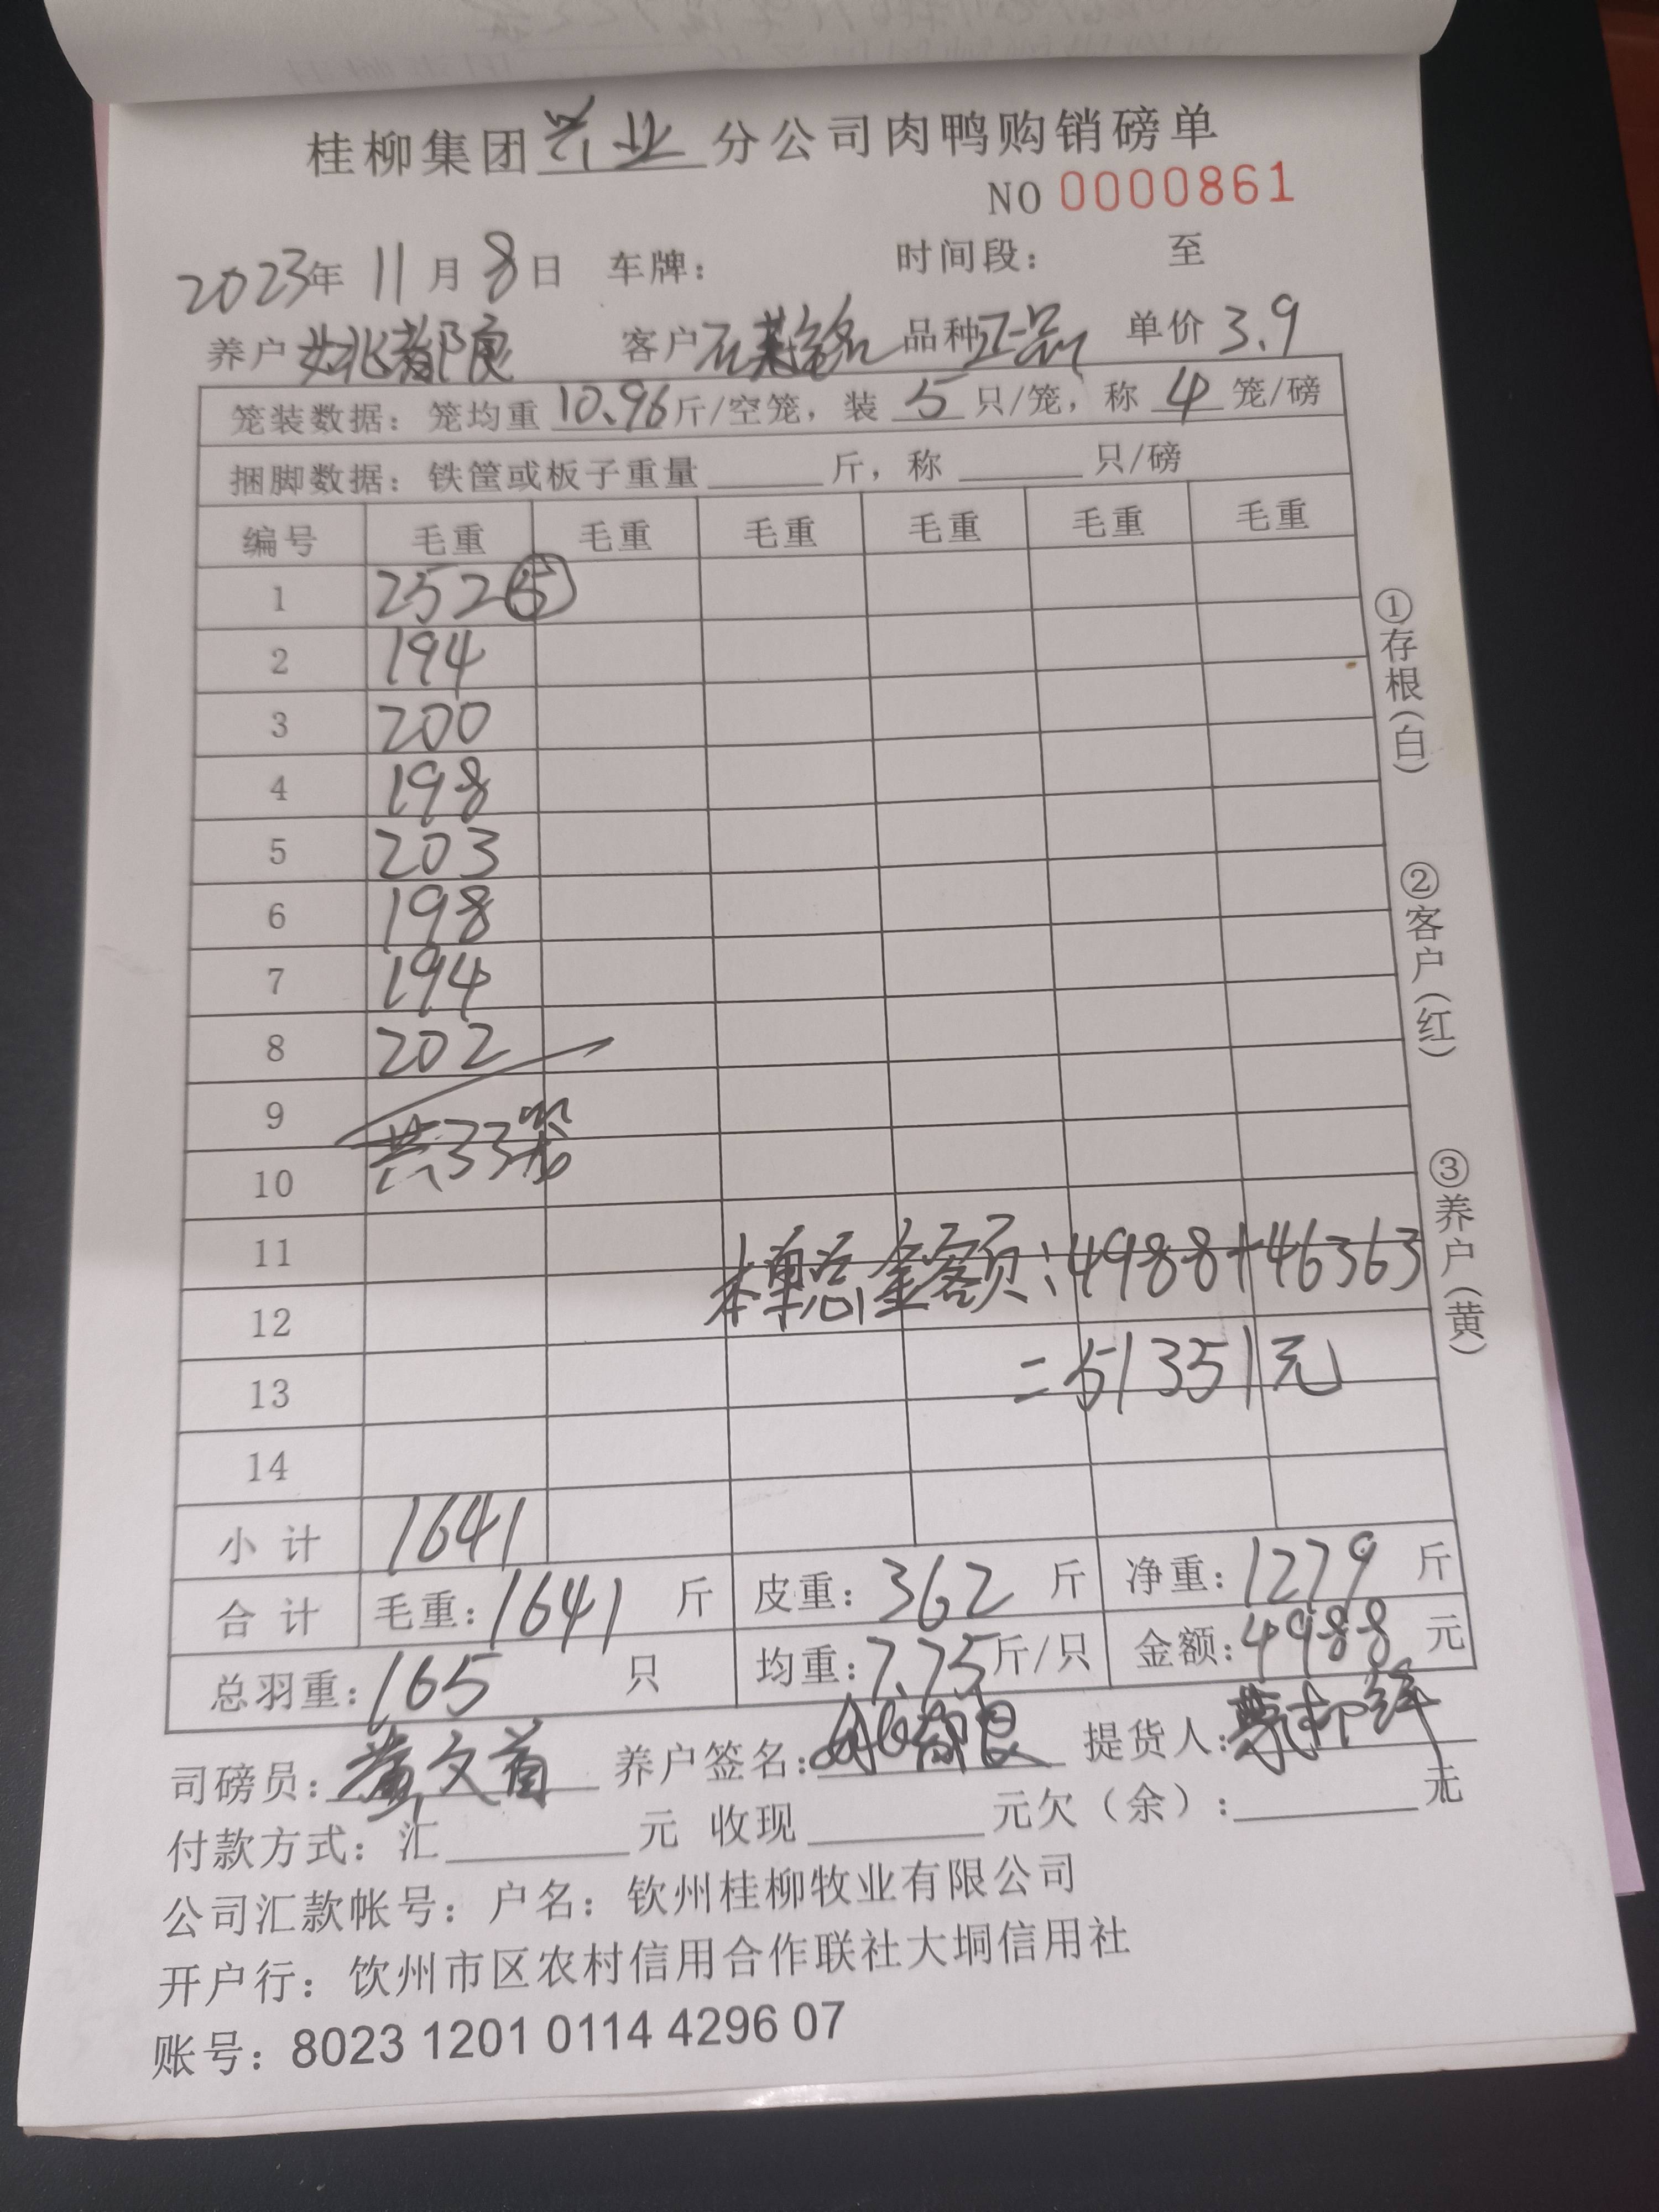 桂柳集团兴业分公司肉鸭购销磅单
NO 0000861
2023年 11月 8日 车牌： 时间段： 至
养户 姚都良 客户 石 铭 品种 正品 单价 3.9
笼装数据：笼均重 10.96 斤/空笼，装 5 只/笼，称 4 笼/磅
捆脚数据：铁筐或板子重量______斤，称______只/磅
编号 毛重 毛重 毛重 毛重 毛重 毛重
1 252 ⑤
2 194
3 200
4 198
5 203
6 198
7 194
8 202
9
10 共33笼
11 本单总金额：4988+46363
12
13 =51351元
14
小计 1641
合计 毛重：1641 斤 皮重：362 斤 净重：1279 斤
总羽重：165 只 均重：7.75斤/只 金额：4988 元
司磅员： 文首 养户签名：姚都良 提货人：
付款方式：汇______元 收现______元欠（余）：______元
公司汇款帐号：户名：钦州桂柳牧业有限公司
开户行：饮州市区农村信用合作联社大垌信用社
账号：8023 1201 0114 4296 07
①存根（白）
②客户（红）
③养户（黄）